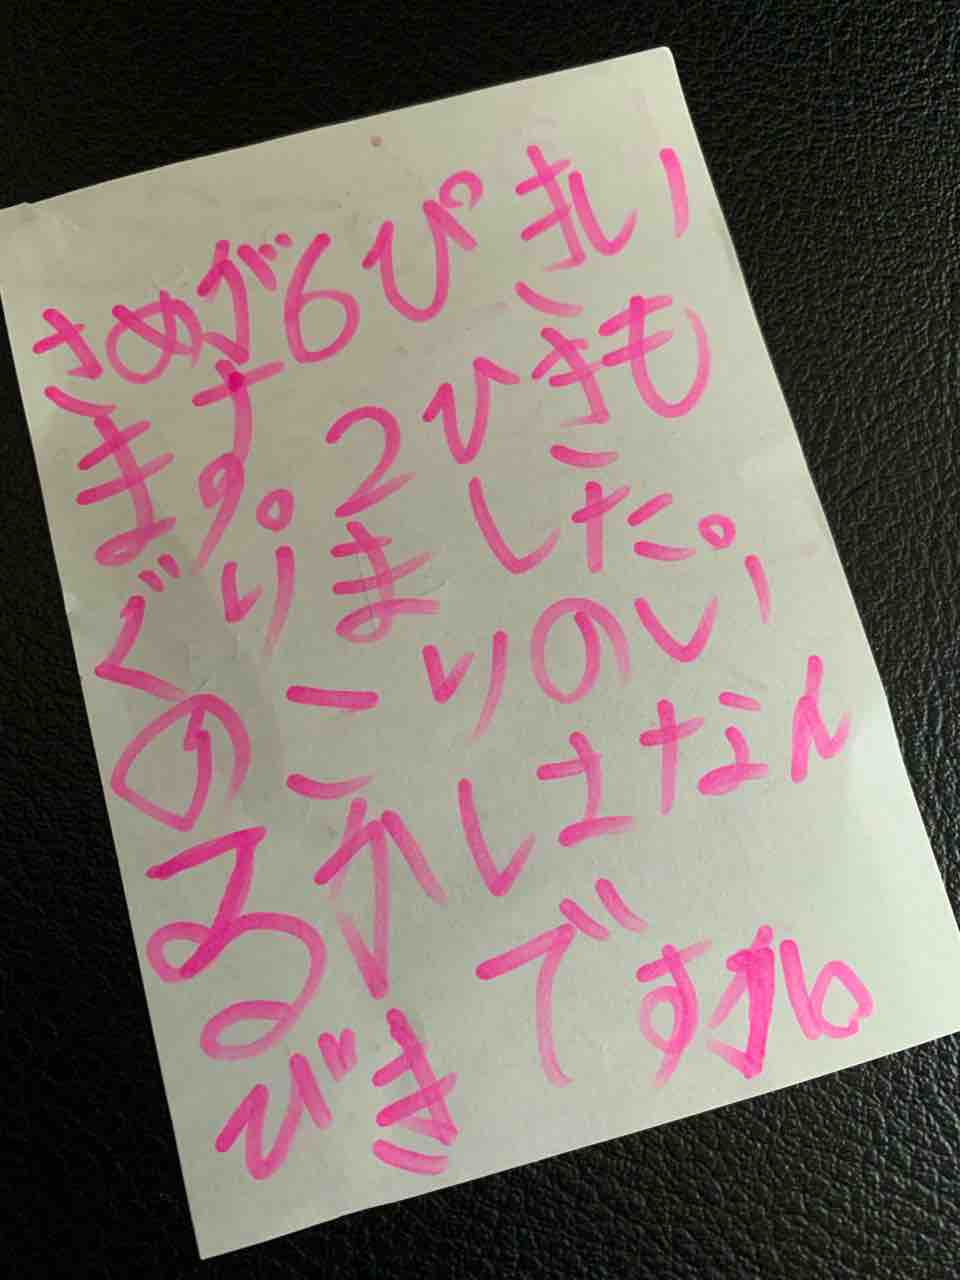 さめが6ぴきい
ます。2ひきも
ぐりました。
のこりのい
るかはなん
びきですか。